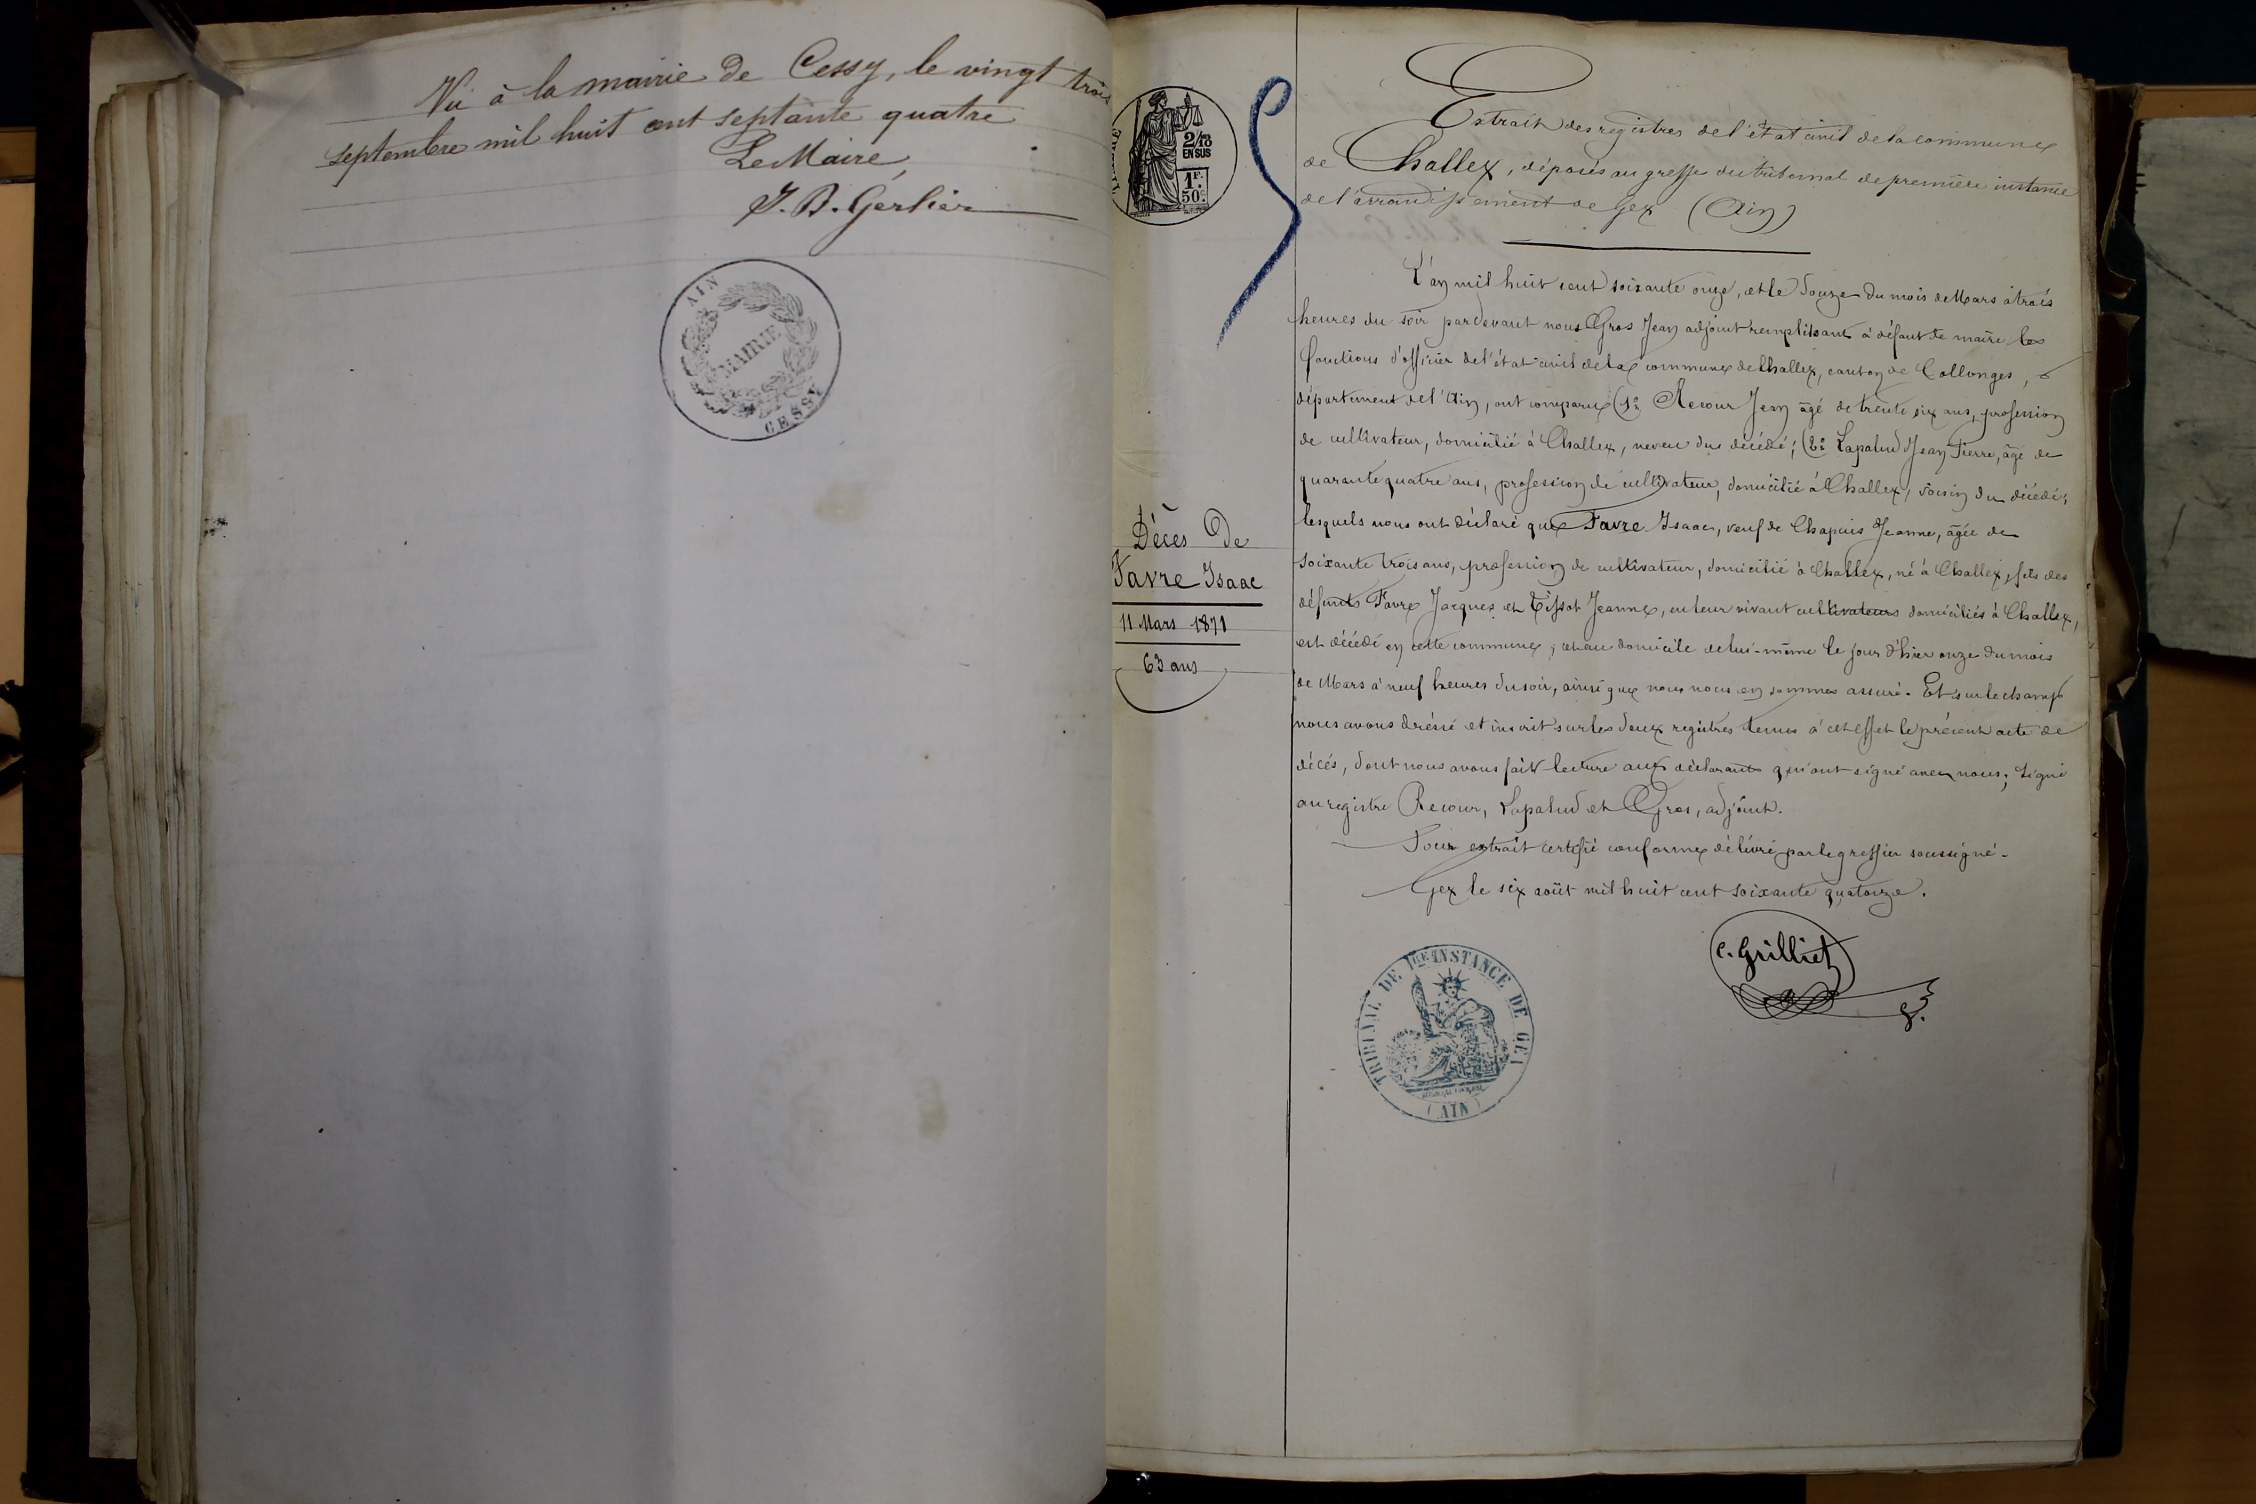 Vu à la mairie de Cessy, le vingt trois
septembre mil huit cent septante quatre
Le Maire,
J. B. Gerlier
AIN
MAIRIE
CESSY
2/10
EN SUS
1F.
50c.
Décès De
Favre Isaac
11 Mars 1871
63 ans
Extrait des registres de l'état civil de la commune
de Challex, déposés au greffe du tribunal de première instance
de l'arrondissement de Gex (Ain)
L'an mil huit cent soixante onze, et le douze du mois de Mars à trois
heures du soir pardevant nous Gros Jean adjoint remplissant à défaut de maire les
fonctions d'officier de l'état-civil de la commune de Challex, canton de Collonges,
département de l'Ain, ont comparu (1° Recour Jean âgé de trente six ans, profession
de cultivateur, domicilié à Challex, neveu du décédé; (2° Lapalud Jean Pierre, âgé de
quarante quatre ans, profession de cultivateur, domicilié à Challex, voisin du décédé;
lesquels nous ont déclaré que Favre Isaac, veuf de Chapuis Jeanne, âgée de
soixante trois ans, profession de cultivateur, domicilié à Challex, né à Challex, fils des
défunts Favre Jacques et Tissot Jeanne, en leur vivant cultivateurs domiciliés à Challex,
est décédé en cette commune, et au domicile de lui-même le jour d'hier onze du mois
de Mars à neuf heures du soir, ainsi que nous nous en sommes assuré. Et sur le champ
nous avons dressé et inscrit sur les deux registres tenus à cet effet le présent acte de
décés, dont nous avons fait lecture aux déclarants qui ont signé avec nous; Signé
au registre Recour, Lapalud et Gros, adjoint.
Pour extrait certifié conforme délivré par le greffier soussigné.
Gex le six août mil huit cent soixante quatorze.
C. Grilliet
TRIBUNAL DE 1RE INSTANCE DE GEX
(AIN)